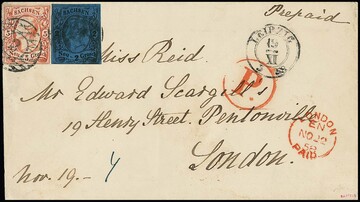 SACHSEN SACHSEN
Prepaid
LEIPZIG
Miss Reid.
P.
Mr Edward Scargill's
19 Henry Street. Pentonville
London.
LONDON
EN
PAID
Nov. 19.— 4